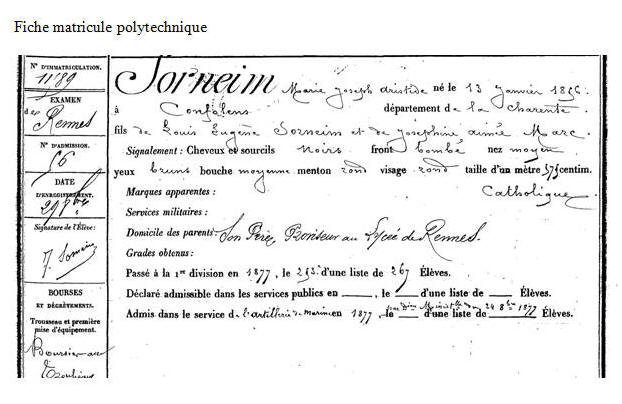 Fiche matricule polytechnique
N° D'IMMATRICULATION.
1189
EXAMEN
de Rennes
N° D'ADMISSION.
56
DATE
D'ENREGISTREMENT.
29 8bre
Signature de l'Élève:
BOURSES
ET DÉGRÈVEMENTS.
Trousseau et première
mise d'équipement.
Boursier avec
Trousseau
Sorneim Marie Joseph Aristide né le 13 janvier 1856
à Confolens département de la Charente
fils de Louis Eugène Sorneim et de Joséphine Aimée Marc.
Signalement: Cheveux et sourcils noirs front bombé nez moyen
yeux bruns bouche moyenne menton rond visage rond taille d'un mètre centim.
Marques apparentes: Catholique
Services militaires:
Domicile des parents: Son Père, Proviseur au Lycée de Rennes.
Grades obtenus:
Passé à la 1re division en 1877, le d'une liste de 267 Élèves.
Déclaré admissible dans les services publics en ____, le ____ d'une liste de ____ Élèves.
Admis dans le service de l'artillerie de marine en 1877, le d'une liste de Élèves.
24 8bre 1877